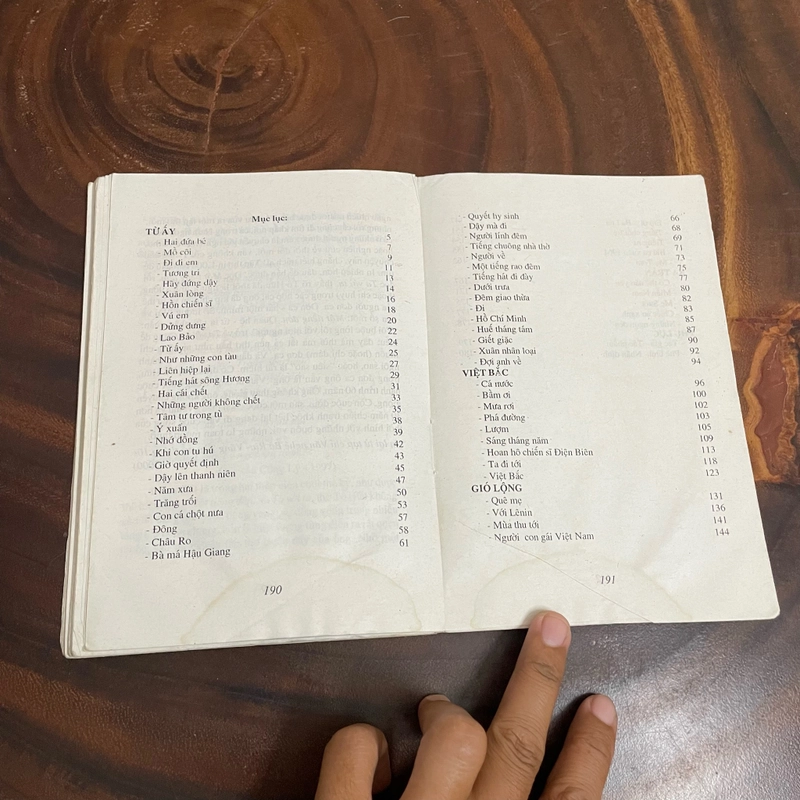 Mục lục:
TỪ ẤY
- Hai đứa bé 5
- Mồ côi 7
- Đi đi em 9
- Tương tri 11
- Hãy đứng dậy 13
- Xuân lòng 14
- Hồn chiến sĩ 16
- Vú em 18
- Dửng dưng 20
- Lao Bảo 22
- Từ ấy 24
- Như những con tàu 25
- Liên hiệp lại 27
- Tiếng hát sông Hương 29
- Hai cái chết 31
- Những người không chết 33
- Tâm tư trong tù 35
- Ý xuân 38
- Nhớ đồng 39
- Khi con tu hú 42
- Giờ quyết định 43
- Dậy lên thanh niên 45
- Năm xưa 47
- Trăng trối 50
- Con cá chột nưa 53
- Đông 57
- Châu Ro 58
- Bà má Hậu Giang 61
190
- Quyết hy sinh 66
- Dậy mà đi 68
- Người lính đêm 69
- Tiếng chuông nhà thờ 71
- Người về 73
- Một tiếng rao đêm 75
- Tiếng hát đi đày 77
- Dưới trưa 80
- Đêm giao thừa 82
- Đi 83
- Hồ Chí Minh 85
- Huế tháng tám 87
- Giết giặc 90
- Xuân nhân loại 92
- Đợi anh về 94
VIỆT BẮC
- Cá nước 96
- Bầm ơi 100
- Mưa rơi 102
- Phá đường 103
- Lượm 105
- Sáng tháng năm 109
- Hoan hô chiến sĩ Điện Biên 113
- Ta đi tới 118
- Việt Bắc 123
GIÓ LỘNG
- Quê mẹ 131
- Với Lênin 136
- Mùa thu tới 141
- Người con gái Việt Nam 144
191